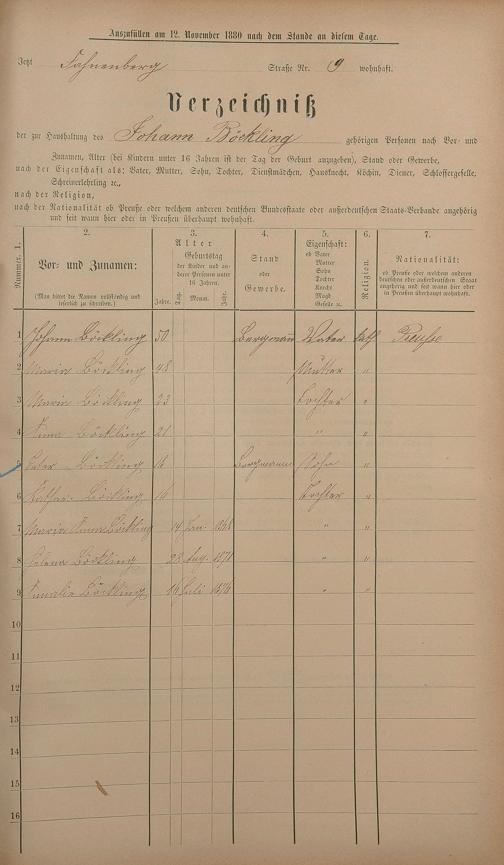 Auszufüllen am 12. November 1880 nach dem Stande an diesem Tage.
Jetzt Fahnenberg Straße Nr. 9 wohnhaft.
Verzeichniß
der zur Haushaltung des Johann Böckling gehörigen Personen nach Vor- und
Zunamen, Alter (bei Kindern unter 16 Jahren ist der Tag der Geburt anzugeben), Stand oder Gewerbe,
nach der Eigenschaft als: Vater, Mutter, Sohn, Tochter, Dienstmädchen, Hausknecht, Köchin, Diener, Schlossergeselle,
Schreinerlehrling ꝛc.,
nach der Religion,
nach der Nationalität ob Preuße oder welchem anderen deutschen Bundesstaate oder außerdeutschen Staats-Verbande angehörig
und seit wann hier oder in Preußen überhaupt wohnhaft.
Nummer. 1.
2.
Vor- und Zunamen:
(Man bittet die Namen vollständig und leserlich zu schreiben.)
3.
Alter
Jahre.
Geburtstag
der Kinder und anderer Personen unter 16 Jahren.
Tag. Mon. Jahr.
4.
Stand
oder
Gewerbe.
5.
Eigenschaft:
ob Vater
Mutter
Sohn
Tochter
Knecht
Magd
Geselle ꝛc.
6.
Religion.
7.
Nationalität:
ob Preuße oder welchem anderen
deutschen oder außerdeutschen Staat
angehörig und seit wann hier oder
in Preußen überhaupt wohnhaft.
1 Johann Böckling 50 Bergmann Vater kath Preuße
2 Maria Böckling 48 Mutter "
3 Maria Böckling 23 Tochter "
4 Anna Böckling 21 " "
5 Peter Böckling 18 Bergmann Sohn "
6 Böckling 16 Tochter "
7 Maria Anna Böckling 14 Jan. 1868 " "
8 Helena Böckling 28 Aug. 1871 " "
9 Amalie Böckling 16 Juli 1876 " "
10
11
12
13
14
15
16